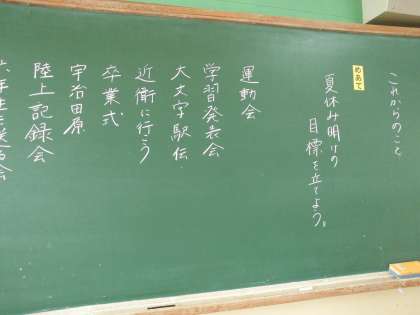 これからのこと
めあて
夏休み明けの
目標を立てよう。
運動会
学習発表会
大文字駅伝
近衛に行う
卒業式
宇治田原
陸上記録会
六年生を送る会